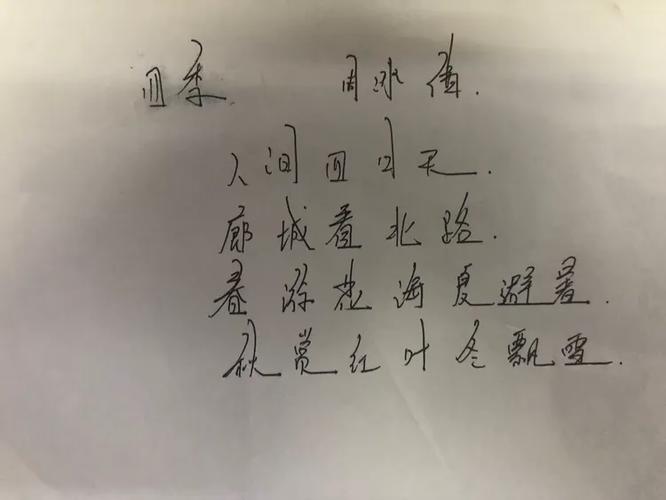 四季 周冰倩.
人间四月天.
廊城看北路.
春游花海夏避暑.
秋赏红叶冬飘雪.